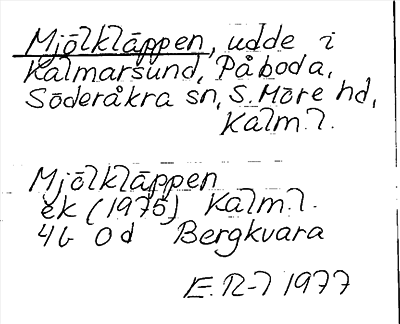 Mjölkläppen, udde i
Kalmarsund, Påboda,
Söderåkra sn, S. Möre hd,
Kalm. l.
Mjölkläppen
ek (1975) Kalm. l.
4G 0d Bergkvara
E. R-7 1977